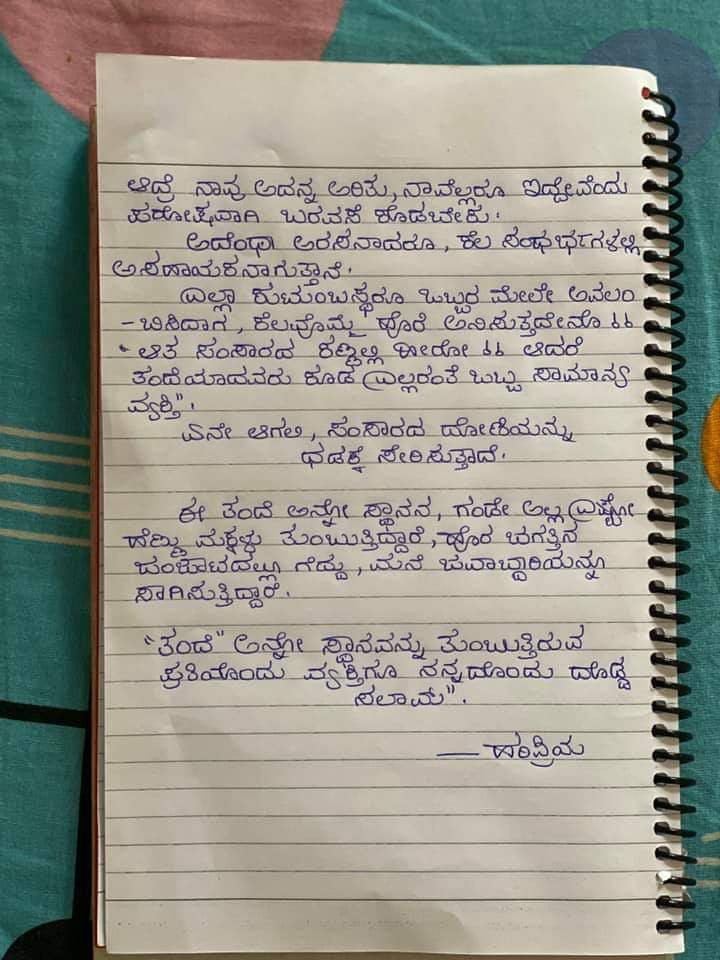 ಆದ್ರೆ ನಾವು ಅದನ್ನ ಅರಿತು, ನಾವೆಲ್ಲರೂ ಇದ್ದೇವೆಂದು
ಪರೋಕ್ಷವಾಗಿ ಬರವಸೆ ಕೊಡಬೇಕು.
ಅದೆಂಥಾ ಅರಸನಾದರೂ, ಕೆಲ ಸಂಧರ್ಭಗಳಲ್ಲಿ
ಅಸಹಾಯಕನಾಗುತ್ತಾನೆ.
ಎಲ್ಲಾ ಕುಟುಂಬಸ್ಥರೂ ಒಬ್ಬರ ಮೇಲೇ ಅವಲಂ
-ಬಿಸಿದಾಗ, ಕೆಲವೊಮ್ಮೆ ಹೊರೆ ಅನಿಸುತ್ತದೇನೊ
"ಆತ ಸಂಸಾರದ ಕಣ್ಣಲ್ಲಿ ಹೀರೋ ಆದರೆ
ತಂದೆಯಾದವರು ಕೂಡ ಎಲ್ಲರಂತೆ ಒಬ್ಬ ಸಾಮಾನ್ಯ
ವ್ಯಕ್ತಿ".
ಏನೇ ಆಗಲಿ, ಸಂಸಾರದ ದೋಣಿಯನ್ನು
ಧಡಕ್ಕೆ ಸೇರಿಸುತ್ತಾದೆ.
ಈ ತಂದೆ ಅನ್ನೋ ಸ್ಥಾನನ, ಗಂಡೇ ಅಲ್ಲ ಎಷ್ಟೋ
ಹೆಣ್ಣು ಮಕ್ಕಳು ತುಂಬುತ್ತಿದ್ದಾರೆ, ಹೊರ ಜಗತ್ತಿನ
ಜಂಜಾಟದಲ್ಲೂ ಗೆದ್ದು, ಮನೆ ಜವಾಬ್ದಾರಿಯನ್ನೂ
ಸಾಗಿಸುತ್ತಿದ್ದಾರೆ.
"ತಂದೆ" ಅನ್ನೋ ಸ್ಥಾನವನ್ನು ತುಂಬುತ್ತಿರುವ
ಪ್ರತಿಯೊಂದು ವ್ಯಕ್ತಿಗೂ ನನ್ನದೊಂದು ದೊಡ್ಡ
ಸಲಾಮ್".
— ಹರಿಪ್ರಿಯ